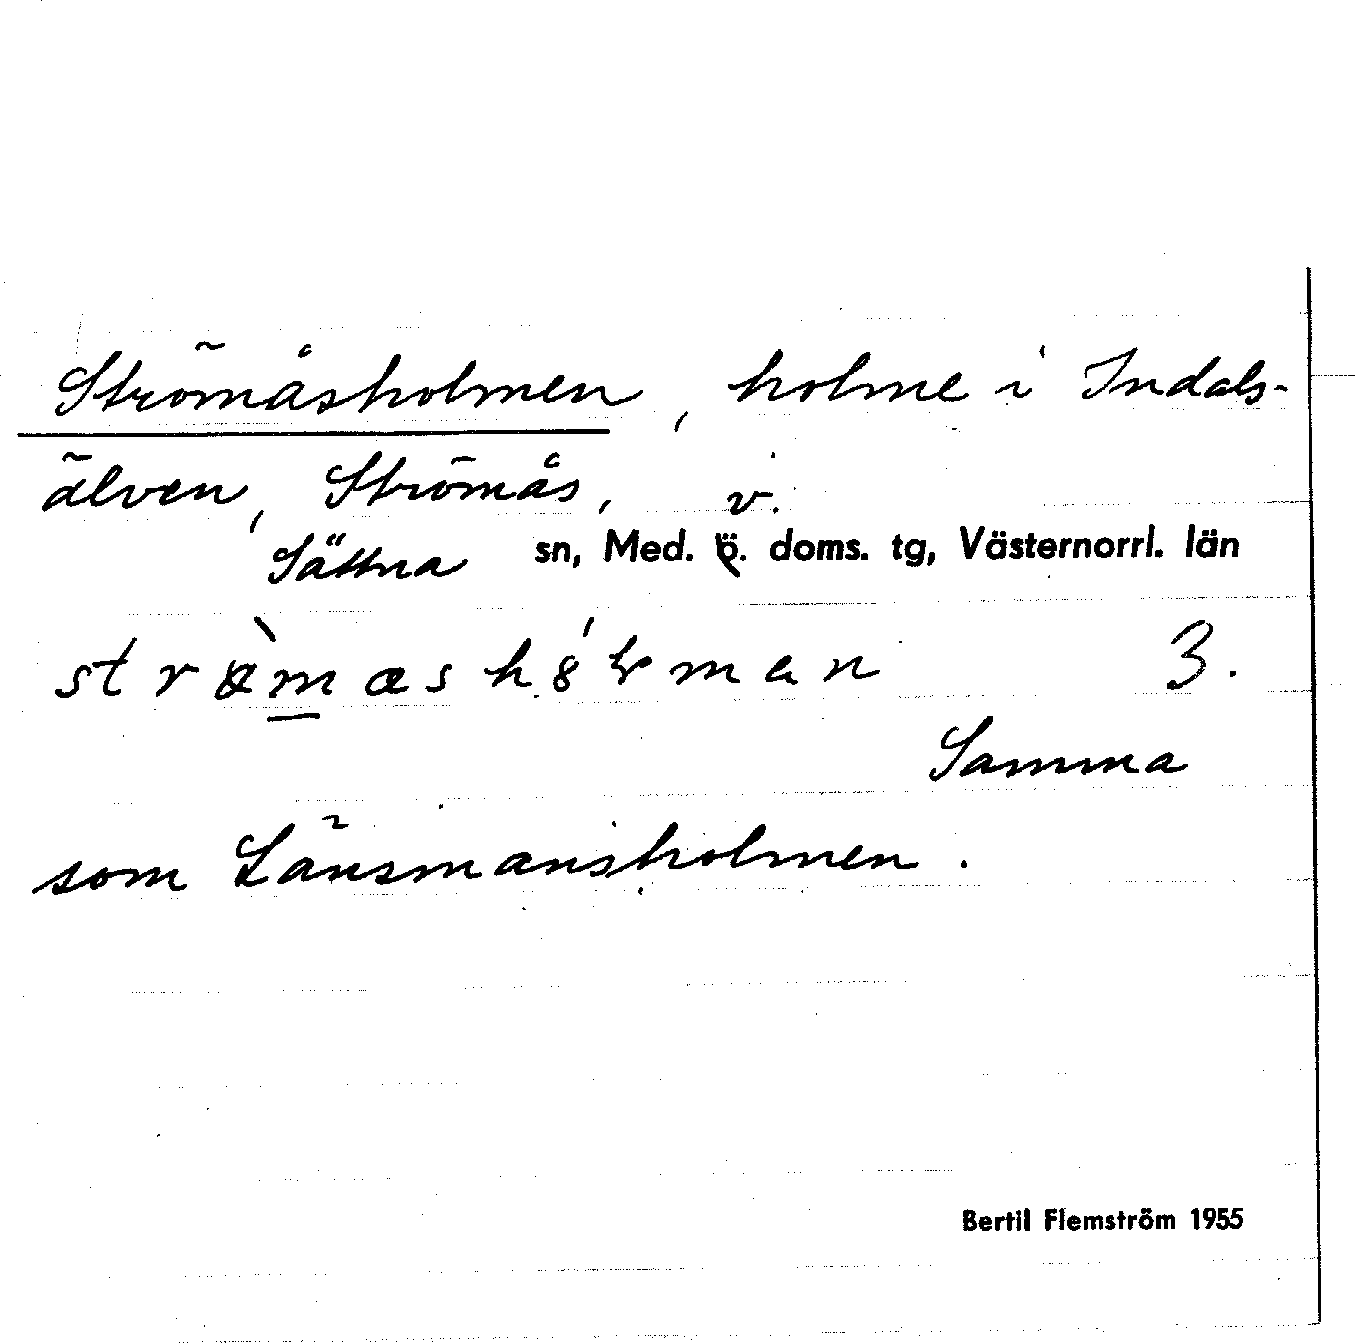 Strömåsholmen, holme i Indals-
älven, Strömås, v.
Sättna sn, Med. ö. doms. tg, Västernorrl. län
3.
Samma
som Länsmansholmen.
Bertil Flemström 1955